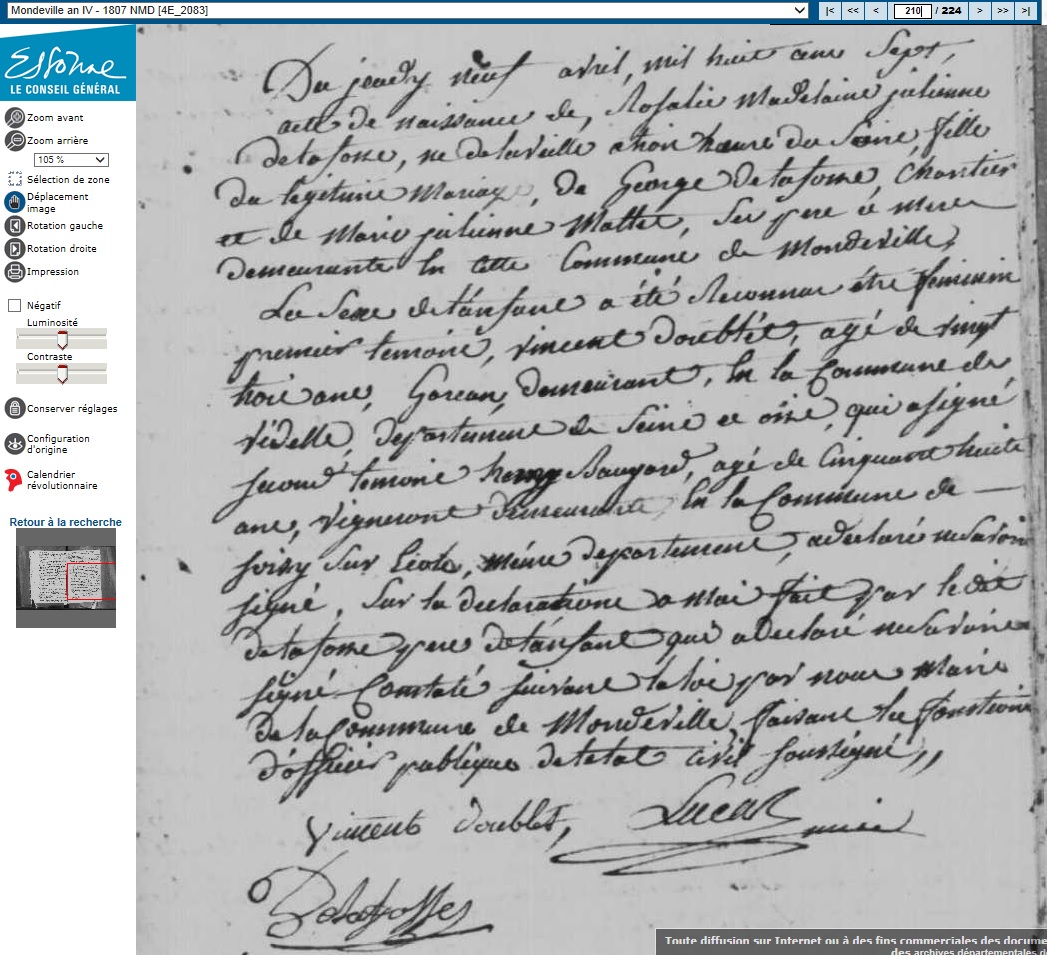 Mondeville an IV - 1807 NMD [4E_2083]
|< << < 210 / 224 > >> >|
Essonne
LE CONSEIL GÉNÉRAL
Zoom avant
Zoom arrière
105 %
Sélection de zone
Déplacement
image
Rotation gauche
Rotation droite
Impression
Négatif
Luminosité
Contraste
Conserver réglages
Configuration
d'origine
Calendrier
révolutionnaire
Retour à la recherche
Du jeudy neuf avril, mil huit cens Sept,
acte de naissance de, Rosalie Madelaine julienne
delafosse, ne delaveille a hure du Soire, fille
du légitime Mariage, De George Delafosse, Chartier
et de Marie julienne Mallet, Ses pere et mere
demeurante En cette Commune de Mondeville,
Le Sexe de l'anfant a été Reconnu étre feminin
premier temoint, vincent Doublét, agé de vingt
trois ans, demeurant, En la Commune de
videlle, departement de Seine et oise, qui a signé
second temoint Saugard, agé de Cinquant huite
ans, vigneront demeurante En la Commune de —
soisy Sur Ecole, méme departement, a declaré ne savoir
signé, Sur la declaratione a Moi fait par le dit
delafosse pere de l'anfant qui a declaré ne savoire
signé Constaté suivant la loi par nous Maire
de la Commune de Mondeville, faisant les fonctions
d'officier publique de letat civil soussigné,,
vincent doublet, Lucas maire
Delafosses
Toute diffusion sur Internet ou à des fins commerciales des docume
des archives départementales d